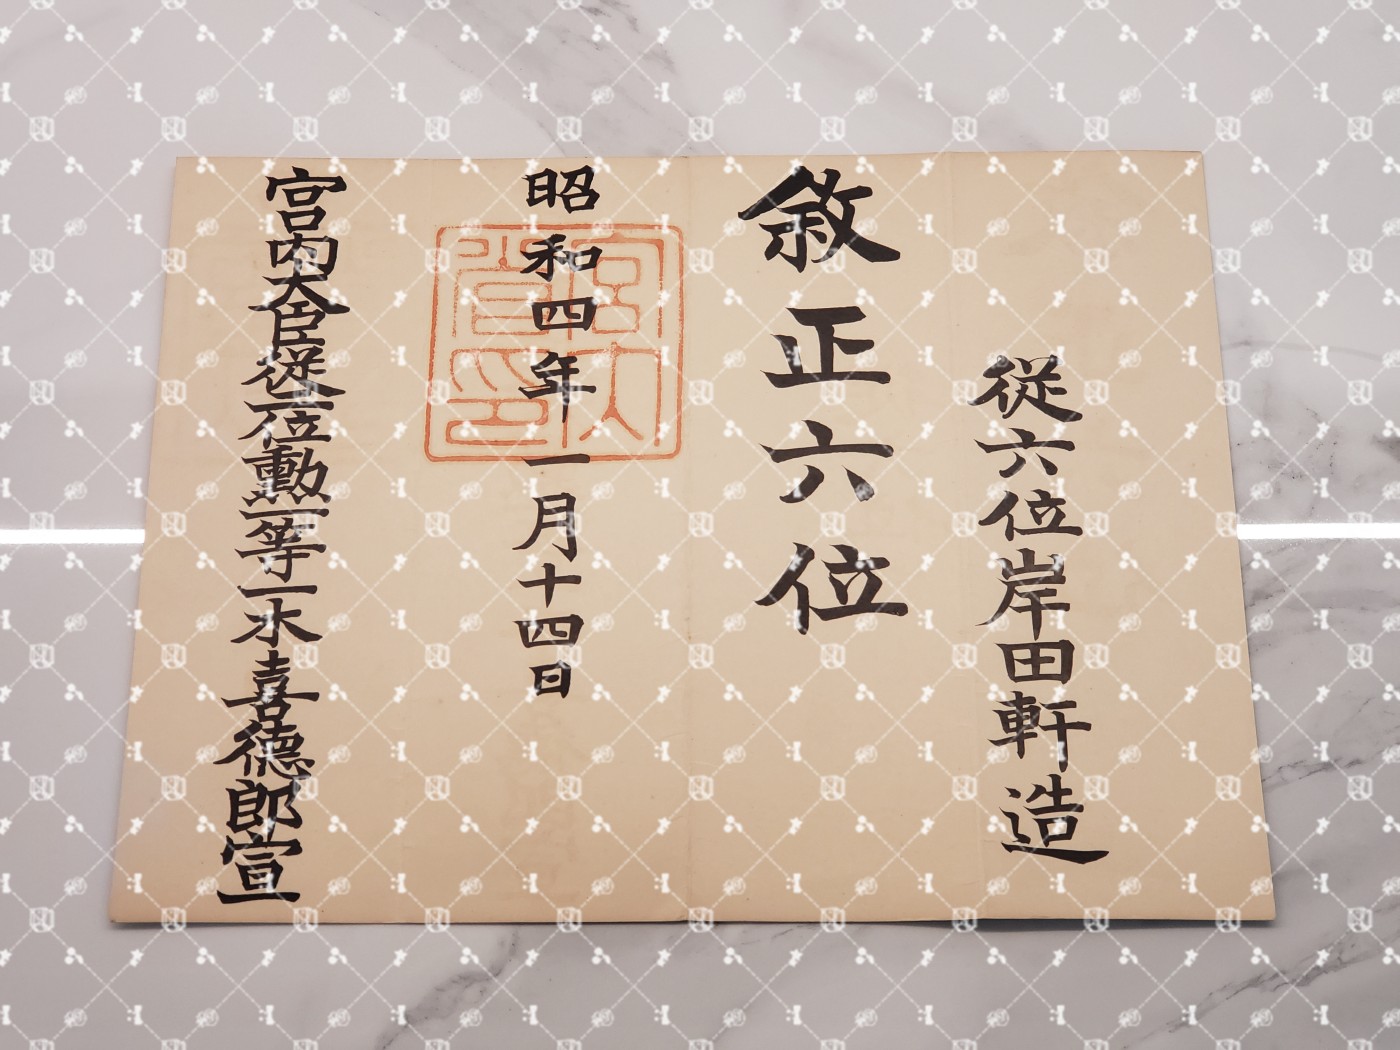 従六位岸田軒造
敘正六位
昭和四年一月十四日
宮内省印
宮内大臣従二位勳一等一木喜德郎宣